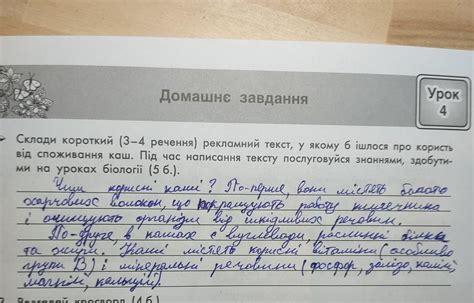 Домашнє завдання
Урок
4
Склади короткий (3–4 речення) рекламний текст, у якому б ішлося про користь
від споживання каш. Під час написання тексту послуговуйся знаннями, здобути-
ми на уроках біології (5 б.).
Чим корисні каші? По-перше, вони містять багато
харчових волокон, що покращують роботу кишечника
і очищують організм від шкідливих речовин.
По-друге в кашах є вуглеводи, рослинні білки
та жири. Каші містять корисні вітаміни (особливо
групи B) і мінеральні речовини (фосфр, залізо, калій,
магній, кальцій).
кросворд (4 б.)